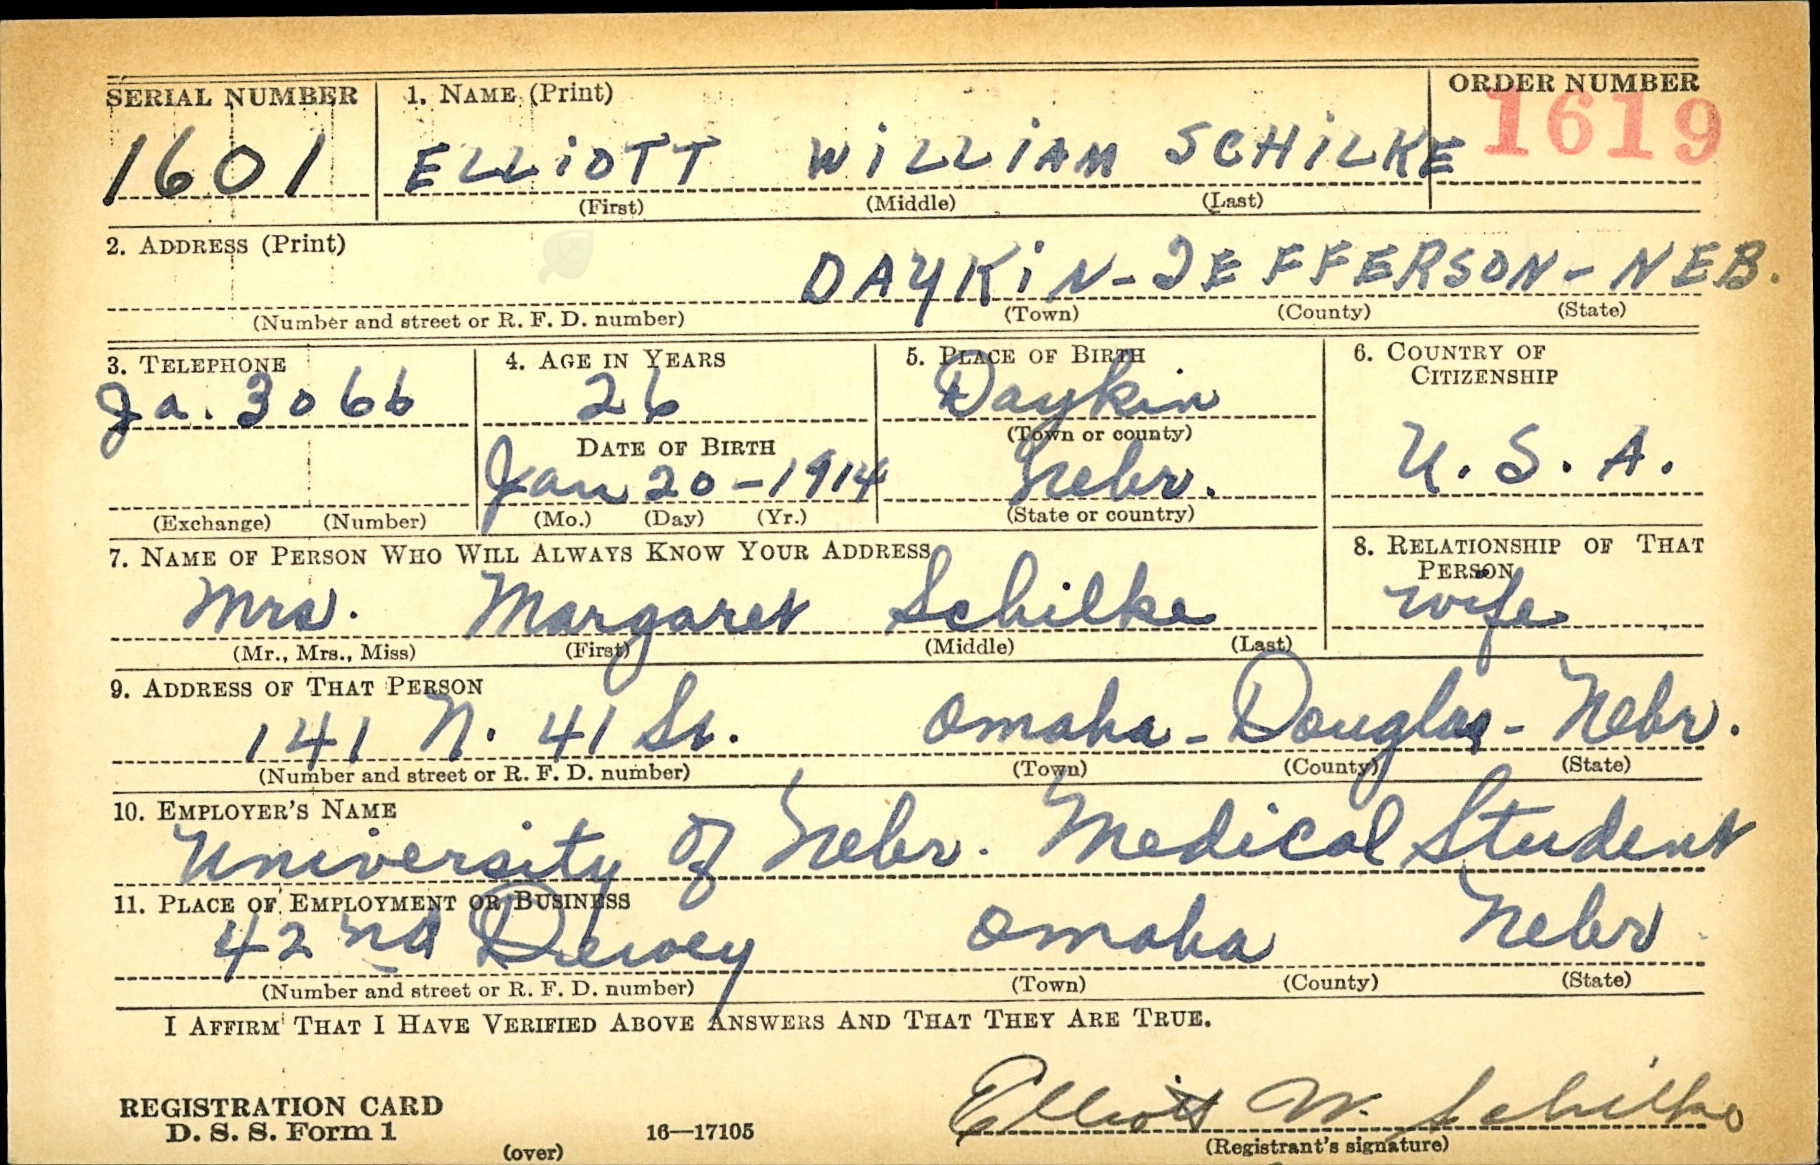 SERIAL NUMBER 1. NAME (Print) ORDER NUMBER
1601 ELLIOTT WILLIAM SCHILKE 1619
(First) (Middle) (Last)
2. ADDRESS (Print)
DAYKIN - JEFFERSON - NEB.
(Number and street or R. F. D. number) (Town) (County) (State)
3. TELEPHONE 4. AGE IN YEARS 5. PLACE OF BIRTH 6. COUNTRY OF
CITIZENSHIP
Ja. 3066 26 Daykin
DATE OF BIRTH (Town or county)
Jan 20 - 1914 Nebr. U. S. A.
(Exchange) (Number) (Mo.) (Day) (Yr.) (State or country)
7. NAME OF PERSON WHO WILL ALWAYS KNOW YOUR ADDRESS 8. RELATIONSHIP OF THAT
PERSON
Mrs. Margaret Schilke wife
(Mr., Mrs., Miss) (First) (Middle) (Last)
9. ADDRESS OF THAT PERSON
141 N. 41 St. Omaha - Douglas - Nebr.
(Number and street or R. F. D. number) (Town) (County) (State)
10. EMPLOYER'S NAME
University of Nebr. Medical Student
11. PLACE OF EMPLOYMENT OR BUSINESS
42nd Dewey Omaha Nebr
(Number and street or R. F. D. number) (Town) (County) (State)
I AFFIRM THAT I HAVE VERIFIED ABOVE ANSWERS AND THAT THEY ARE TRUE.
REGISTRATION CARD Elliott W. Schilke
D. S. S. Form 1 16—17105 (Registrant's signature)
(over)